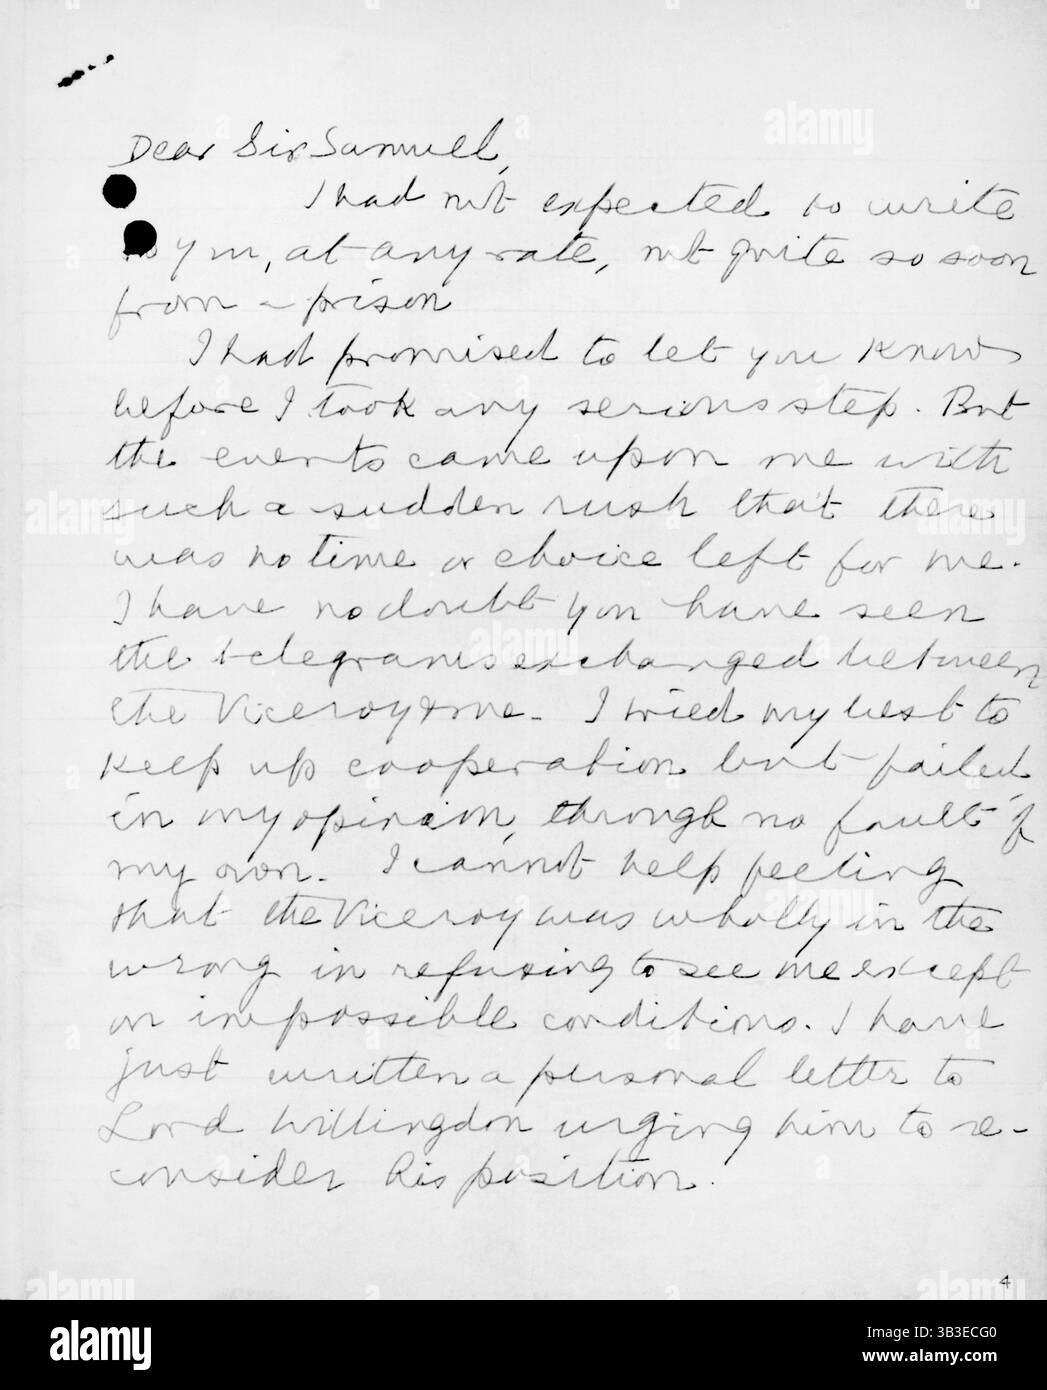 Dear Sir Samuel,
I had not expected to write
to you, at any rate, not quite so soon
from a prison
I had promised to let you know
before I took any serious step. But
the events came upon me with
such a sudden rush that there
was no time or choice left for me.
I have no doubt you have seen
the telegrams exchanged between
the Viceroy & me. I tried my best to
keep up cooperation but failed,
in my opinion, through no fault of
my own. I cannot help feeling
that the Viceroy was wholly in the
wrong in refusing to see me except
on impossible conditions. I have
just written a personal letter to
Lord Willingdon urging him to re-
consider his position.
4
alamy
Image ID: 2B3ECG0
www.alamy.com